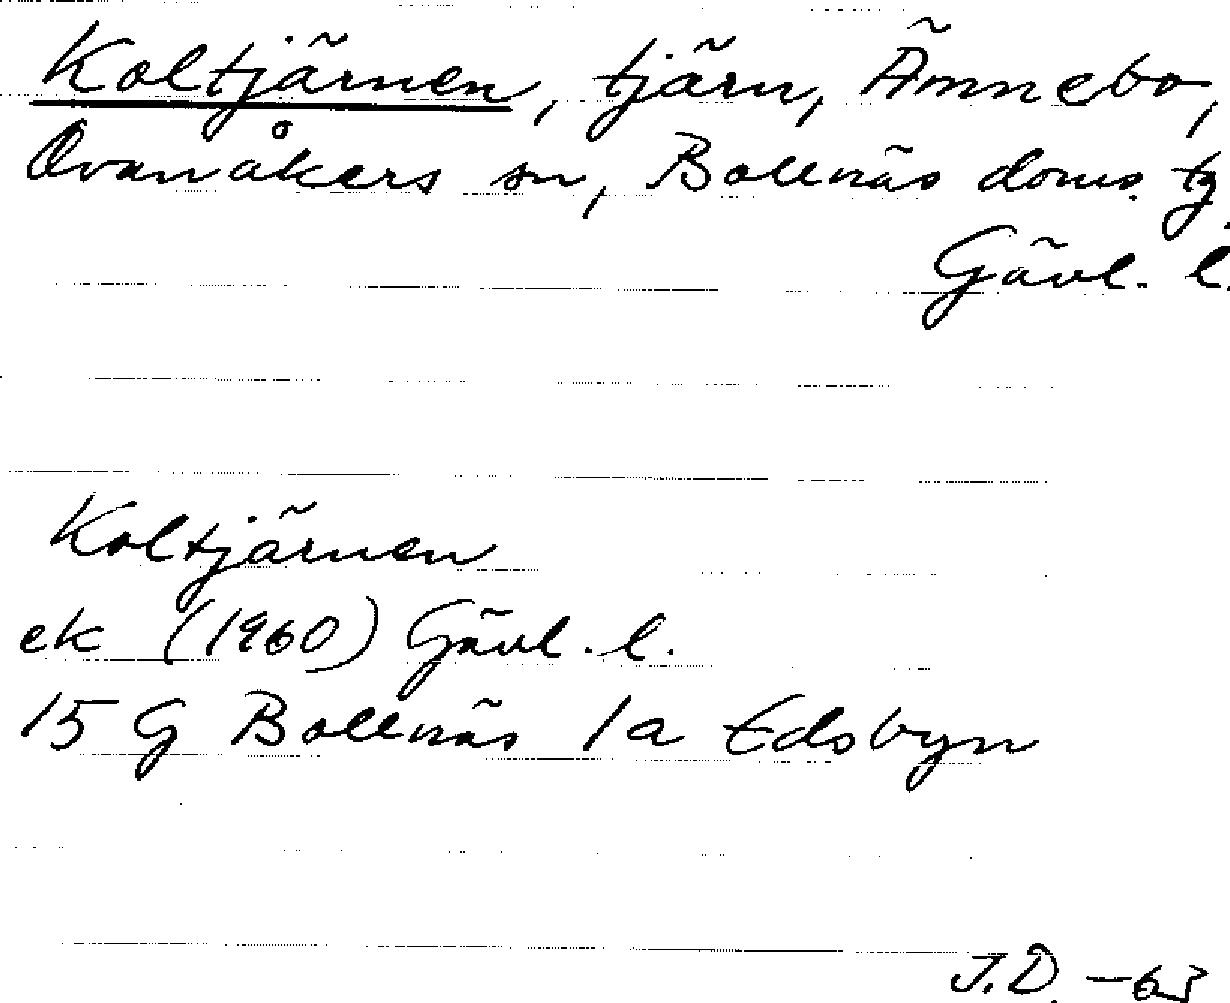 Koltjärnen, tjärn, Ämnebo,
Ovanåkers sn, Bollnäs doms. tg.
Gävl. l.
Koltjärnen
ek (1960) Gävl. l.
15 G Bollnäs 1a Edsbyn
J.D. -63